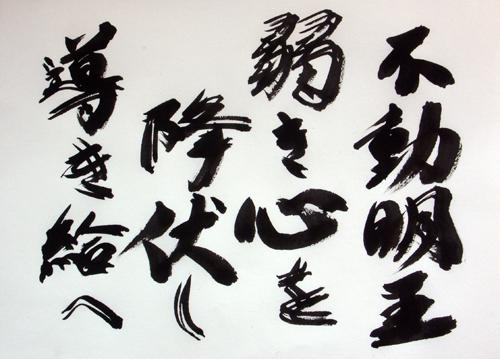 不動明王
弱き心を
降伏し
導き給へ